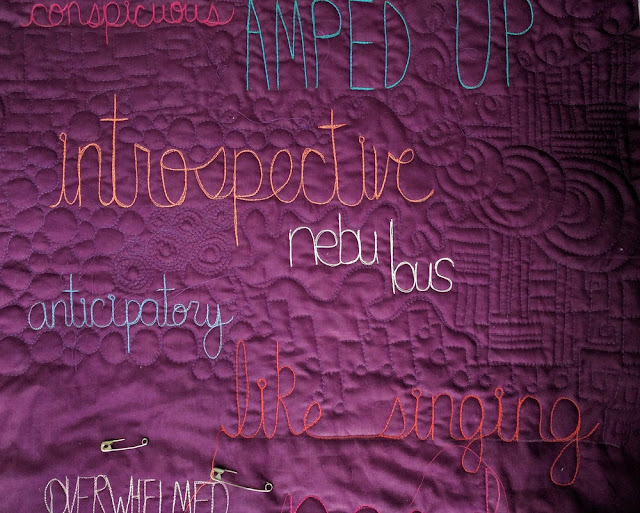 conspicuous
AMPED UP
introspective
nebulous
anticipatory
like singing
OVERWHELMED